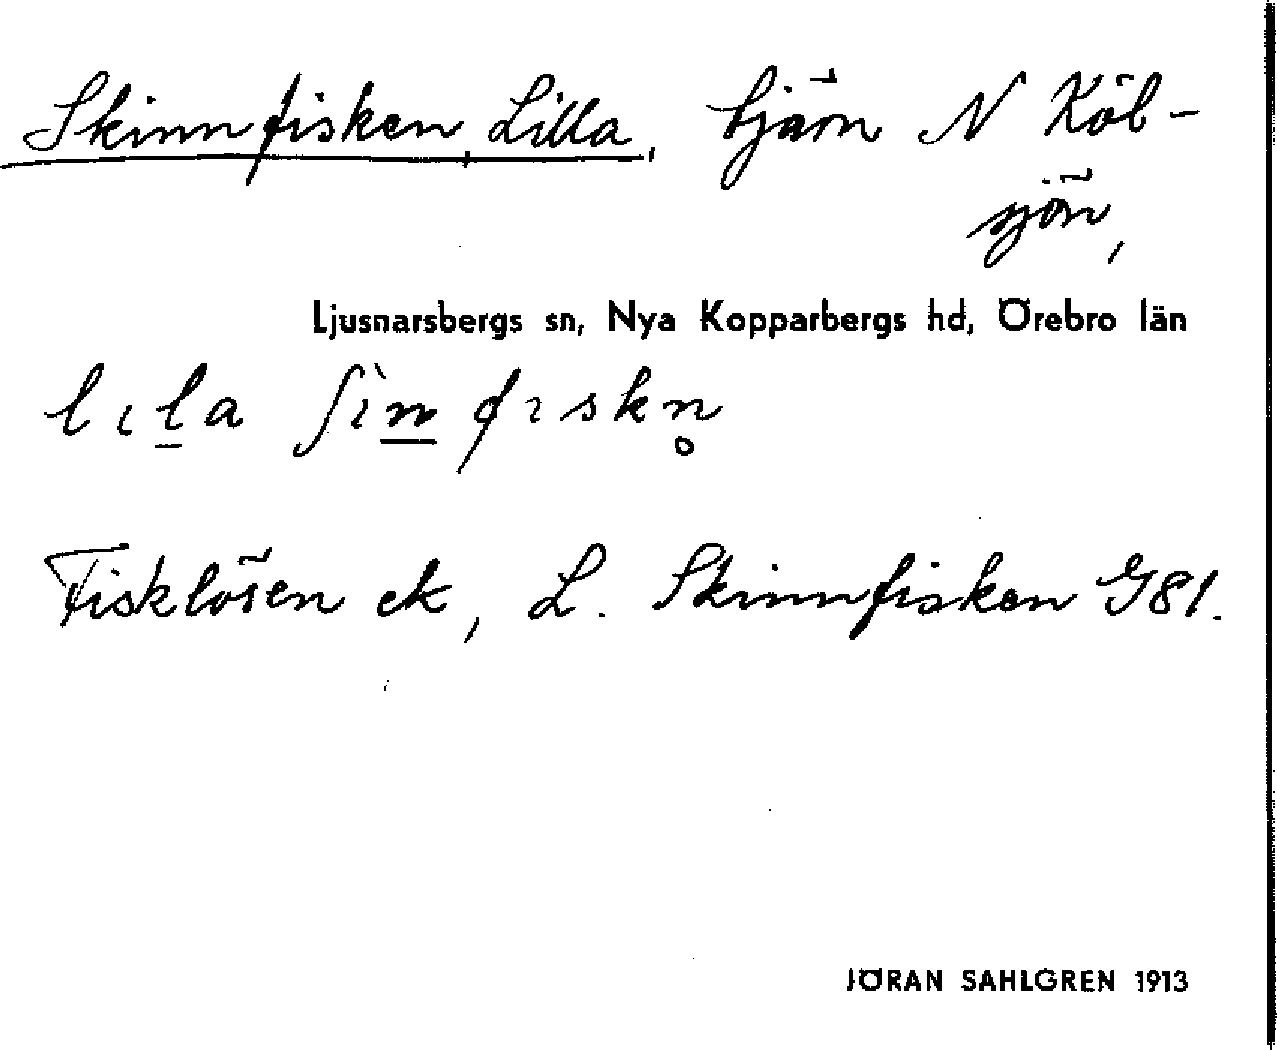 Skinnfisken, Lilla, tjärn N Köl-
sjön,
Ljusnarsbergs sn, Nya Kopparbergs hd, Örebro län
lıl̲a ʃìn̲fıskn̥
Fisklösen ek, L. Skinnfisken G81.
JÖRAN SAHLGREN 1913